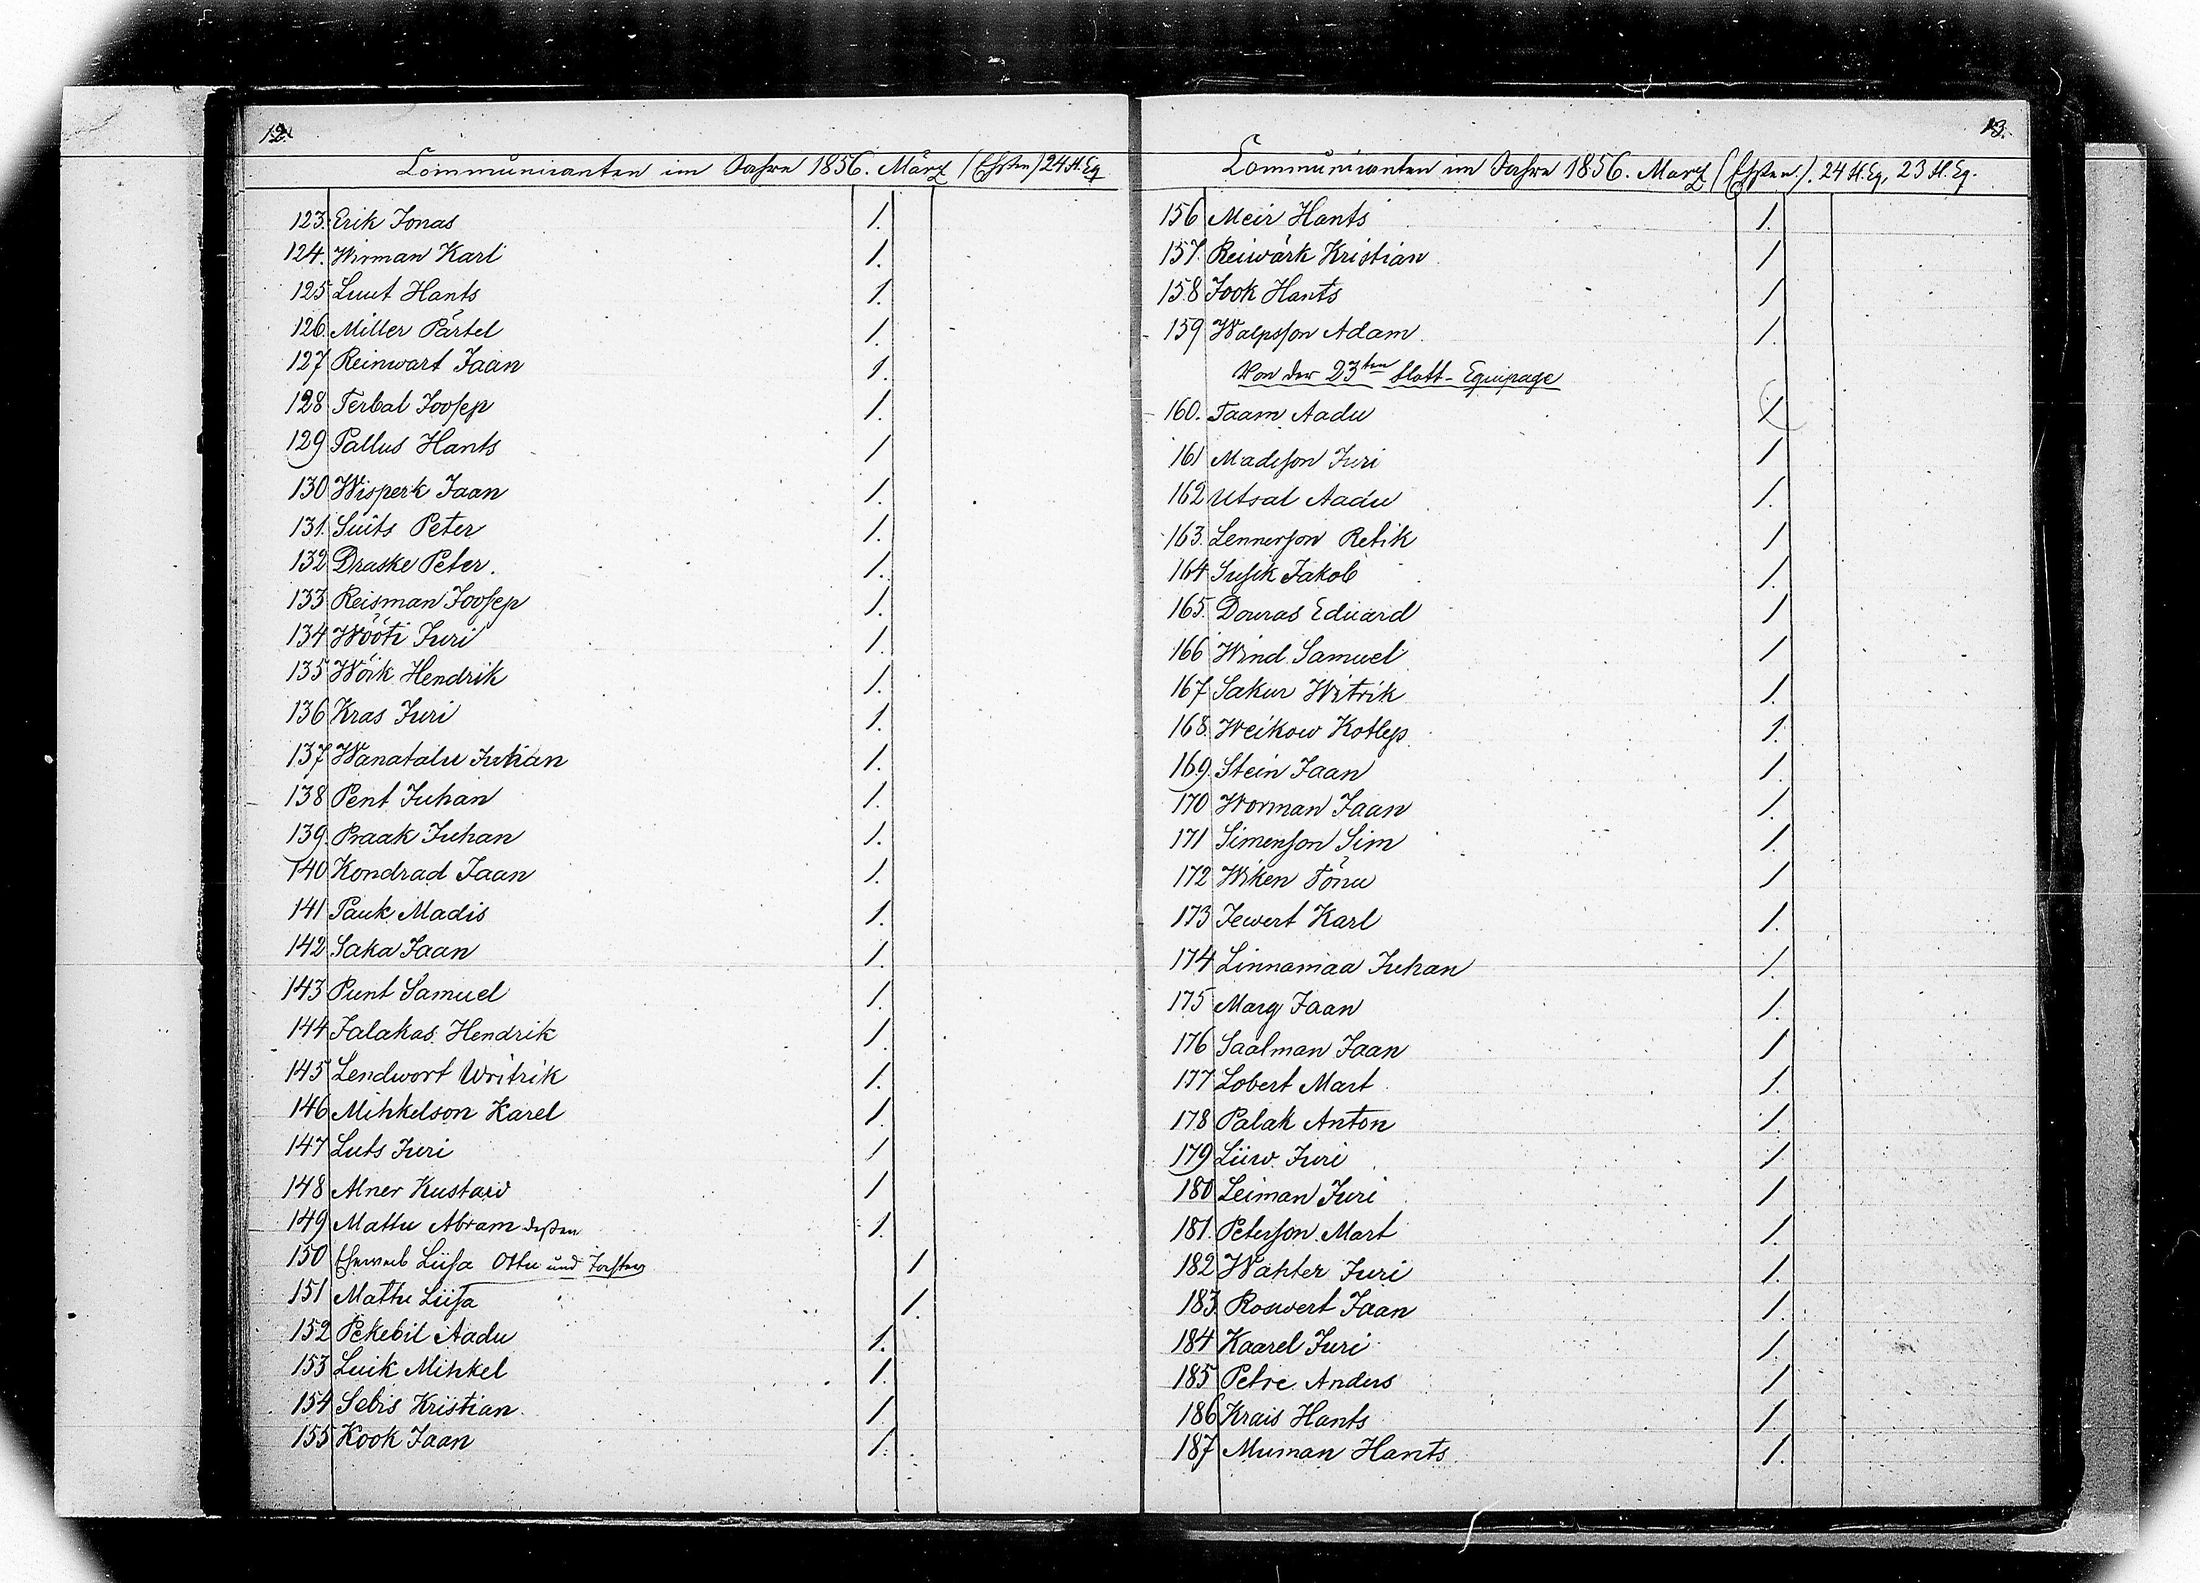 12.
Communicanten im Jahre 1856. März (Ehsten) 24 Fl. Eq
123. Erik Jonas 1.
124. Wirman Karl 1.
125 Luut Hants 1.
126. Miller Pärtel 1.
127 Reinwart Jaan 1.
128 Terbal Joosep 1.
129 Pallus Hants 1
130 Wisperk Jaan 1.
131. Suits Peter 1.
132 Draske Peter. 1.
133 Reisman Joosep 1.
134 Wööti Juri 1.
135 Wöik Hendrik 1.
136 Kras Juri 1.
137 Wanatalu Juhan 1.
138 Pent Juhan 1.
139. Praak Juhan 1.
140 Kondrad Jaan 1.
141 Pauk Madis 1.
142 Saka Jaan 1.
143 Punt Samuel 1.
144 Jalakas Hendrik 1.
145 Lendwort Writrik 1.
146 Mihkelson Karel 1.
147 Luts Juri 1
148 Alner Kustaw 1
149 Mattu Abram deßen 1.
150 Eheweib Liisa Ottu und Tochter 1
151 Mattu Liisa 1.
152 Pekebil Aadu 1.
153 Luik Mihkel 1.
154 Sebis Kristian 1.
155 Kook Jaan 1.
13.
Communicanten im Jahre 1856. März (Ehsten.). 24 Fl. Eq, 23 Fl. Eq.
156 Meir Hants 1.
157. Reiwärk Kristian 1
158 Jook Hants 1
159 Walpsson Adam. 1.
Von der 23ten Flott-Equipage
160. Taam Aadu 1
161 Madison Juri 1
162 Utsal Aadu 1.
163. Lennerson Retik 1
164 Susik Jakob 1.
165. Douras Eduard 1
166 Wind Samuel 1
167 Sakur Witrik 1.
168. Weikow Kotlep 1.
169. Stein Jaan 1.
170 Worman Jaan 1.
171 Simenson Sim 1.
172 Wiken Tõnu 1
173 Jewert Karl 1.
174 Linnamaa Juhan 1.
175 Marg Jaan 1.
176 Saalman Jaan 1
177 Lobert Mart 1.
178 Palak Anton 1.
179 Liiw Juri 1.
180 Leiman Juri 1
181. Peterson Mart 1.
182 Wahter Juri 1.
183. Roswert Jaan 1.
184 Kaarel Juri 1.
185 Petre Andres 1
186 Krais Hants 1.
187 Muman Hants 1.